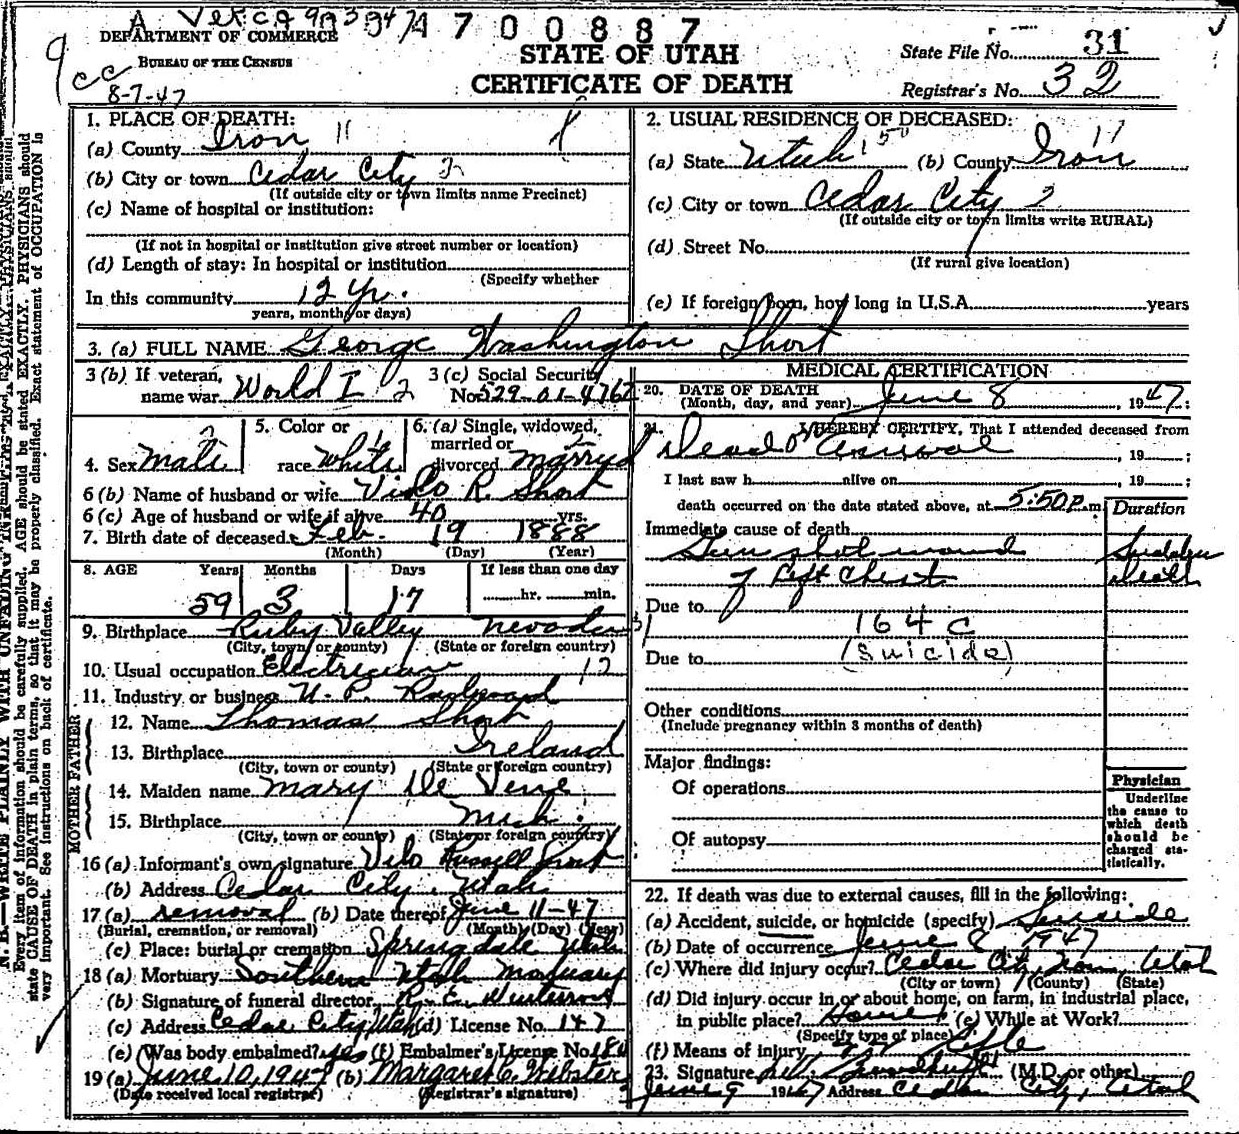 A Ver. CA 9 3 3 47
A 7 0 0 8 8 7
DEPARTMENT OF COMMERCE
BUREAU OF THE CENSUS
CC
8-7-47
STATE OF UTAH
CERTIFICATE OF DEATH
State File No. 31
Registrar's No. 32
1. PLACE OF DEATH:
(a) County Iron 11
(b) City or town Cedar City 2
(If outside city or town limits name Precinct)
(c) Name of hospital or institution:
(If not in hospital or institution give street number or location)
(d) Length of stay: In hospital or institution
(Specify whether
In this community 12 Yr.
years, months or days)
2. USUAL RESIDENCE OF DECEASED:
(a) State Utah (b) County Iron 11
(c) City or town Cedar City 2
(If outside city or town limits write RURAL)
(d) Street No.
(If rural give location)
(e) If foreign born, how long in U.S.A. years
3. (a) FULL NAME George Washington Short
3 (b) If veteran, name war World I 2
3 (c) Social Security No. 529-01-4762
4. Sex Male
5. Color or race White
6. (a) Single, widowed, married or divorced married
6 (b) Name of husband or wife Vilo R. Short
6 (c) Age of husband or wife if alive 40 yrs.
7. Birth date of deceased Feb. 19 1888
(Month) (Day) (Year)
8. AGE Years Months Days If less than one day
59 3 17 hr. min.
9. Birthplace Ruby Valley Nevada
(City, town or county) (State or foreign country)
10. Usual occupation Electrician 12
11. Industry or business U. P. Railroad
FATHER
12. Name Thomas Short
13. Birthplace Ireland
(City, town or county) (State or foreign country)
MOTHER
14. Maiden name Mary De Vene
15. Birthplace Mich.
(City, town or county) (State or foreign country)
16 (a) Informant's own signature Vilo Russell Short
(b) Address Cedar City, Utah
17 (a) removal (b) Date thereof June 11-47
(Burial, cremation, or removal) (Month) (Day) (Year)
(c) Place: burial or cremation Springdale Utah
18 (a) Mortuary Southern Utah Mortuary
(b) Signature of funeral director
(c) Address Cedar City, Utah (d) License No. 147
(e) Was body embalmed? yes (f) Embalmer's License No. 180
19 (a) June 10, 1947 (b) Margaret C. Webster
(Date received local registrar) (Registrar's signature)
MEDICAL CERTIFICATION
20. DATE OF DEATH
(Month, day, and year) June 8, 1947;
21. I HEREBY CERTIFY, That I attended deceased from
Dead on Arrival, 19 ;
I last saw h alive on , 19 ;
death occurred on the date stated above, at 5:50 p.m.
Duration
Immediate cause of death
Gun shot wound Sudden
of Left Chest Death
Due to
164c
Due to (Suicide)
Other conditions
(Include pregnancy within 3 months of death)
Major findings:
Of operations
Of autopsy
Physician
Underline the cause to which death should be charged statistically.
22. If death was due to external causes, fill in the following:
(a) Accident, suicide, or homicide (specify) Suicide
(b) Date of occurrence June 8 1947
(c) Where did injury occur? Cedar City, Iron, Utah
(City or town) (County) (State)
(d) Did injury occur in or about home, on farm, in industrial place,
in public place? Home (e) While at Work?
(Specify type of place)
(f) Means of injury 22 Rifle
23. Signature (M.D. or other)
June 9 1947 Address Cedar City, Utah
N. B.—WRITE PLAINLY WITH UNFADING INK
Every item of information should be carefully supplied. AGE should be stated EXACTLY. PHYSICIANS should
state CAUSE OF DEATH in plain terms, so that it may be properly classified. Exact statement of OCCUPATION is
very important. See instructions on back of certificate.